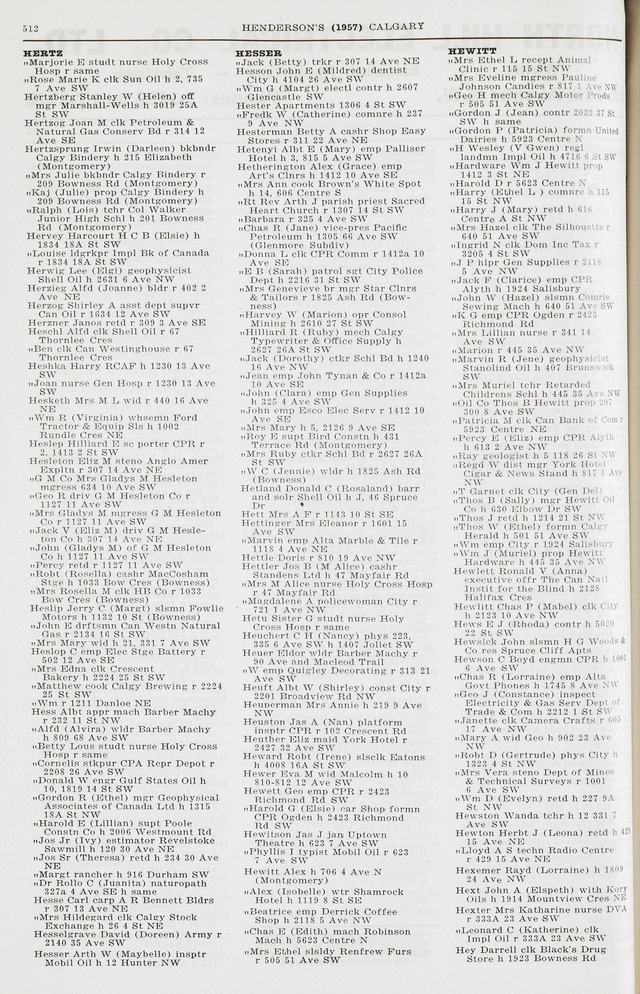 512
HENDERSON'S (1957) CALGARY
HERTZ
„Marjorie E studt nurse Holy Cross
Hosp r same
„Rose Marie K clk Sun Oil h 2, 735
7 Ave SW
Hertzberg Stanley W (Helen) off
mgr Marshall-Wells h 3019 25A
St SW
Hertzog Joan M clk Petroleum &
Natural Gas Conserv Bd r 314 12
Ave SE
Hertzsprung Irwin (Darleen) bkbndr
Calgry Bindery h 215 Elizabeth
(Montgomery)
„Mrs Julie bkbndr Calgry Bindery r
209 Bowness Rd (Montgomery)
„Kaj (Julie) prop Calgry Bindery h
209 Bowness Rd (Montgomery)
„Ralph (Lois) tchr Col Walker
Junior High Schl h 201 Bowness
Rd (Montgomery)
Hervey Harcourt H C B (Elsie) h
1834 18A St SW
„Louise ldgrkpr Impl Bk of Canada
r 1834 18A St SW
Herwig Lee (Elgi) geophysicist
Shell Oil h 2631 6 Ave NW
Herzieg Alfd (Joanne) bldr r 402 2
Ave NE
Herzog Shirley A asst dept supvr
Can Oil r 1634 12 Ave SW
Herzner Janos retd r 309 3 Ave SE
Heschl Alfd clk Shell Oil r 67
Thornlee Cres
„Ben clk Can Westinghouse r 67
Thornlee Cres
Heshka Harry RCAF h 1230 13 Ave
SW
„Joan nurse Gen Hosp r 1230 13 Ave
SW
Hesketh Mrs M L wid r 440 16 Ave
NE
„Wm R (Virginia) whsemn Ford
Tractor & Equip Sls h 1002
Rundle Cres NE
Heslep Hilliard E sc porter CPR r
2, 1413 2 St SW
Hesleton Eliz M steno Anglo Amer
Expltn r 307 14 Ave NE
„G M Co Mrs Gladys M Hesleton
mgress 634 10 Ave SW
„Geo R driv G M Hesleton Co r
1127 11 Ave SW
„Mrs Gladys M mgress G M Hesleton
Co r 1127 11 Ave SW
„Jack V (Eliz M) driv G M Hesle-
ton Co h 307 14 Ave NE
„John (Gladys M) of G M Hesleton
Co h 1127 11 Ave SW
„Percy retd r 1127 11 Ave SW
„Robt (Rosella) cashr MacCosham
Stge h 1033 Bow Cres (Bowness)
„Mrs Rosella M clk HB Co r 1033
Bow Cres (Bowness)
Heslip Jerry C (Margt) slsmn Fowlie
Motors h 1132 10 St (Bowness)
„John E drftsmn Can Westn Natural
Gas r 2134 16 St SW
„Mrs Mary wid h 21, 331 7 Ave SW
Heslop C emp Elec Stge Battery r
502 12 Ave SE
„Mrs Edna clk Crescent
Bakery h 2224 25 St SW
„Matthew cook Calgry Brewing r 2224
25 St SW
„Wm r 1211 Danloe NE
Hess Albt appr mach Barber Machy
r 232 11 St NW
„Alfd (Alvira) wldr Barber Machy
h 809 68 Ave SW
„Betty Lous studt nurse Holy Cross
Hosp r same
„Cornelis stkpur CPA Repr Depot r
2208 26 Ave SW
„Donald W engr Gulf States Oil h
10, 1819 14 St SW
„Gordon R (Ethel) mgr Geophysical
Associates of Canada Ltd h 1315
18A St NW
„Harold E (Lillian) supt Poole
Constn Co h 2006 Westmount Rd
„Jos Jr (Ivy) estimator Revelstoke
Sawmill h 120 30 Ave NE
„Jos Sr (Theresa) retd h 234 30 Ave
NE
„Margt rancher h 916 Durham SW
„Dr Rollo C (Juanita) naturopath
327a 4 Ave SE h same
Hesse Carl carp A R Bennett Bldrs
r 307 13 Ave NE
„Mrs Hildegard clk Calgry Stock
Exchange h 26 4 St NE
Hesselgrave David (Doreen) Army r
2140 35 Ave SW
Hesser Arth W (Maybelle) insptr
Mobil Oil h 12 Hunter NW
HESSER
„Jack (Betty) trkr r 307 14 Ave NE
Hesson John E (Mildred) dentist
City h 4104 26 Ave SW
„Wm G (Margt) electl contr h 2607
Glencastle SW
Hester Apartments 1306 4 St SW
„Fredk W (Catherine) comnre h 237
9 Ave NW
Hesterman Betty A cashr Shop Easy
Stores r 311 22 Ave NE
Hetenyi Albt E (Mary) emp Palliser
Hotel h 3, 815 5 Ave SW
Hetherington Alex (Grace) emp
Art's Clnrs h 1412 10 Ave SE
„Mrs Ann cook Brown's White Spot
h 14, 606 Centre S
„Rt Rev Arth J parish priest Sacred
Heart Church r 1307 14 St SW
„Barbara r 325 4 Ave SW
„Chas R (Jane) vice-pres Pacific
Petroleum h 1305 66 Ave SW
(Glenmore Subdiv)
„Donna L clk CPR Comm r 1412a 10
Ave SE
„E B (Sarah) patrol sgt City Police
Dept h 2216 31 St SW
„Mrs Genevieve br mgr Star Clnrs
& Tailors r 1825 Ash Rd (Bow-
ness)
„Harvey W (Marion) opr Consol
Mining h 2610 27 St SW
„Hilliard R (Ruby) mech Calgy
Typewriter & Office Supply h
2627 26A St SW
„Jack (Dorothy) ctkr Schl Bd h 1240
16 Ave NW
„Jean emp John Tynan & Co r 1412a
10 Ave SE
„John (Clara) emp Gen Supplies
h 325 4 Ave SW
„John emp Esco Elec Serv r 1412 10
Ave SE
„Mrs Mary h 5, 2126 9 Ave SE
„Roy E supt Bird Constn h 431
Terrace Rd (Montgomery)
„Mrs Ruby ctkr Schl Bd r 2627 26A
St SW
„W C (Jennie) wldr h 1825 Ash Rd
(Bowness)
Hetland Donald C (Rosaland) barr
and solr Shell Oil h J, 46 Spruce
Dr
Hett Mrs A F r 1143 10 St SE
Hettinger Mrs Eleanor r 1601 15
Ave SW
„Marvin emp Alta Marble & Tile r
1118 4 Ave NE
Hettle Doris r 810 19 Ave NW
Hettler Jos B (M Alice) cashr
Standens Ltd h 47 Mayfair Rd
„Mrs M Alice nurse Holy Cross Hosp
r 47 Mayfair Rd
„Magdalene A policewoman City r
721 1 Ave NW
Hetu Sister G studt nurse Holy
Cross Hosp r same
Heuchert C H (Nancy) phys 223,
335 6 Ave SW h 1407 Joliet SW
Heuer Eldor wldr Barber Machy r
90 Ave and Macleod Trail
„W emp Quigley Decorating r 313 21
Ave SW
Heuft Albt W (Shirley) const City r
2201 Broadview Rd NW
Heuperman Mrs Annie h 219 9 Ave
NW
Heuston Jas A (Nan) platform
insptr CPR r 102 Crescent Rd
Heuther Eliz maid York Hotel r
2427 32 Ave SW
Heward Robt (Irene) slsclk Eatons
h 4008 16A St SW
Hewer Eva M wid Malcolm h 10
810-812 12 Ave SW
Hewett Geo emp CPR r 2423
Richmond Rd SW
„Harold G (Elsie) car Shop formn
CPR Ogden h 2423 Richmond
Rd SW
Hewitson Jas J jan Uptown
Theatre h 623 7 Ave SW
„Phyllis I typist Mobil Oil r 623
7 Ave SW
Hewitt Alex h 706 4 Ave N
(Montgomery)
„Alex (Isobelle) wtr Shamrock
Hotel h 1119 8 St SE
„Beatrice emp Derrick Coffee
Shop h 2118 5 Ave NW
„Chas E (Edith) mach Robinson
Mach h 5623 Centre N
„Mrs Ethel slsldy Renfrew Furs
r 505 51 Ave SW
HEWITT
„Mrs Ethel L recept Animal
Clinic r 115 15 St NW
„Mrs Eveline mgress Pauline
Johnson Candies r 817 1 Ave NW
„Geo H mech Calgy Motor Prods
r 505 51 Ave SW
„Gordon J (Jean) contr 2032 37 St
SW h same
„Gordon P (Patricia) formn United
Dairies h 5923 Centre N
„H Wesley (V Gwen) regl
landmn Impl Oil h 4716 6 St SW
„Hardware Wm J Hewitt prop
1412 3 St NE
„Harold D r 5623 Centre N
„Harry (Ethel L) comnre h 115
15 St NW
„Harry J (Mary) retd h 616
Centre A St NW
„Mrs Hazel clk The Silhouette r
640 51 Ave SW
„Ingrid N clk Dom Inc Tax r
3205 4 St SW
„J P hlpr Gen Supplies r 2118
5 Ave NW
„Jack F (Clarice) emp CPR
Alyth h 1924 Salisbury
„John W (Hazel) slsmn Comrie
Sewing Mach h 640 51 Ave SW
„K G emp CPR Ogden r 2423
Richmond Rd
„Mrs Lillian nurse r 341 14
Ave SW
„Marion r 445 35 Ave NW
„Marvin R (Jene) geophysicist
Stanolind Oil h 407 Brunswick
SW
„Mrs Muriel tchr Retarded
Childrens Schl h 445 35 Ave NW
„Oil Co Thos B Hewitt prop 207
300 8 Ave SW
„Patricia M clk Can Bank of Com r
5923 Centre NE
„Percy E (Eliz) emp CPR Alyth
h 613 2 Ave NW
„Ray geologist h 5 118 26 St NW
„Regd W dist mgr York Hotel
Cigar & News Stand h 817 1 Ave
NW
„T Garnet clk City (Gen Del)
„Thos B (Sally) mgr Hewitt Oil
Co h 630 Elbow Dr SW
„Thos J retd h 1214 21 St NW
„Thos W (Ethel) formn Calgry
Herald h 501 51 Ave SW
„Wm emp City r 1924 Salisbury
„Wm J (Muriel) prop Hewitt
Hardware h 445 35 Ave NW
Hewlett Ronald V (Anna)
executive offr The Can Natl
Instit for the Blind h 2128
Halifax Cres
Hewlitt Chas P (Mabel) clk City
h 2123 10 Ave NW
Hews E J (Rhoda) contr h 5020
22 St SW
Hewsick John slsmn H G Woods &
Co res Spruce Cliff Apts
Hewson C Boyd engmn CPR h 1001
6 Ave SW
„Chas R (Lorraine) emp Alta
Govt Phones h 1745 8 Ave NW
„Geo J (Constance) inspect
Electricity & Gas Serv Dept of
Trade & Com h 2212 1 St SW
„Janette clk Camera Crafts r 605
17 Ave NW
„Mary A wid Geo h 902 23 Ave
NW
„Robt D (Gertrude) phys City h
1323 4 St NW
„Mrs Vera steno Dept of Mines
& Technical Surveys r 1001
6 Ave SW
„Wm D (Evelyn) retd h 227 9A
St NW
Hewston Wanda tchr h 12 331 7
Ave SW
Hewton Herbt J (Leona) retd h 429
15 Ave NE
„Lloyd A S techn Radio Centre
r 429 15 Ave NE
Hexemer Rayd (Lorraine) h 1809
24 Ave NW
Hext John A (Elspeth) with Kory
Oils h 1914 Mountview Cres NE
Hexter Mrs Katharine nurse DVA
r 333A 23 Ave SW
„Leonard C (Katherine) clk
Impl Oil r 333A 23 Ave SW
Hey Darrell clk Black's Drug
Store h 1923 Bowness Rd